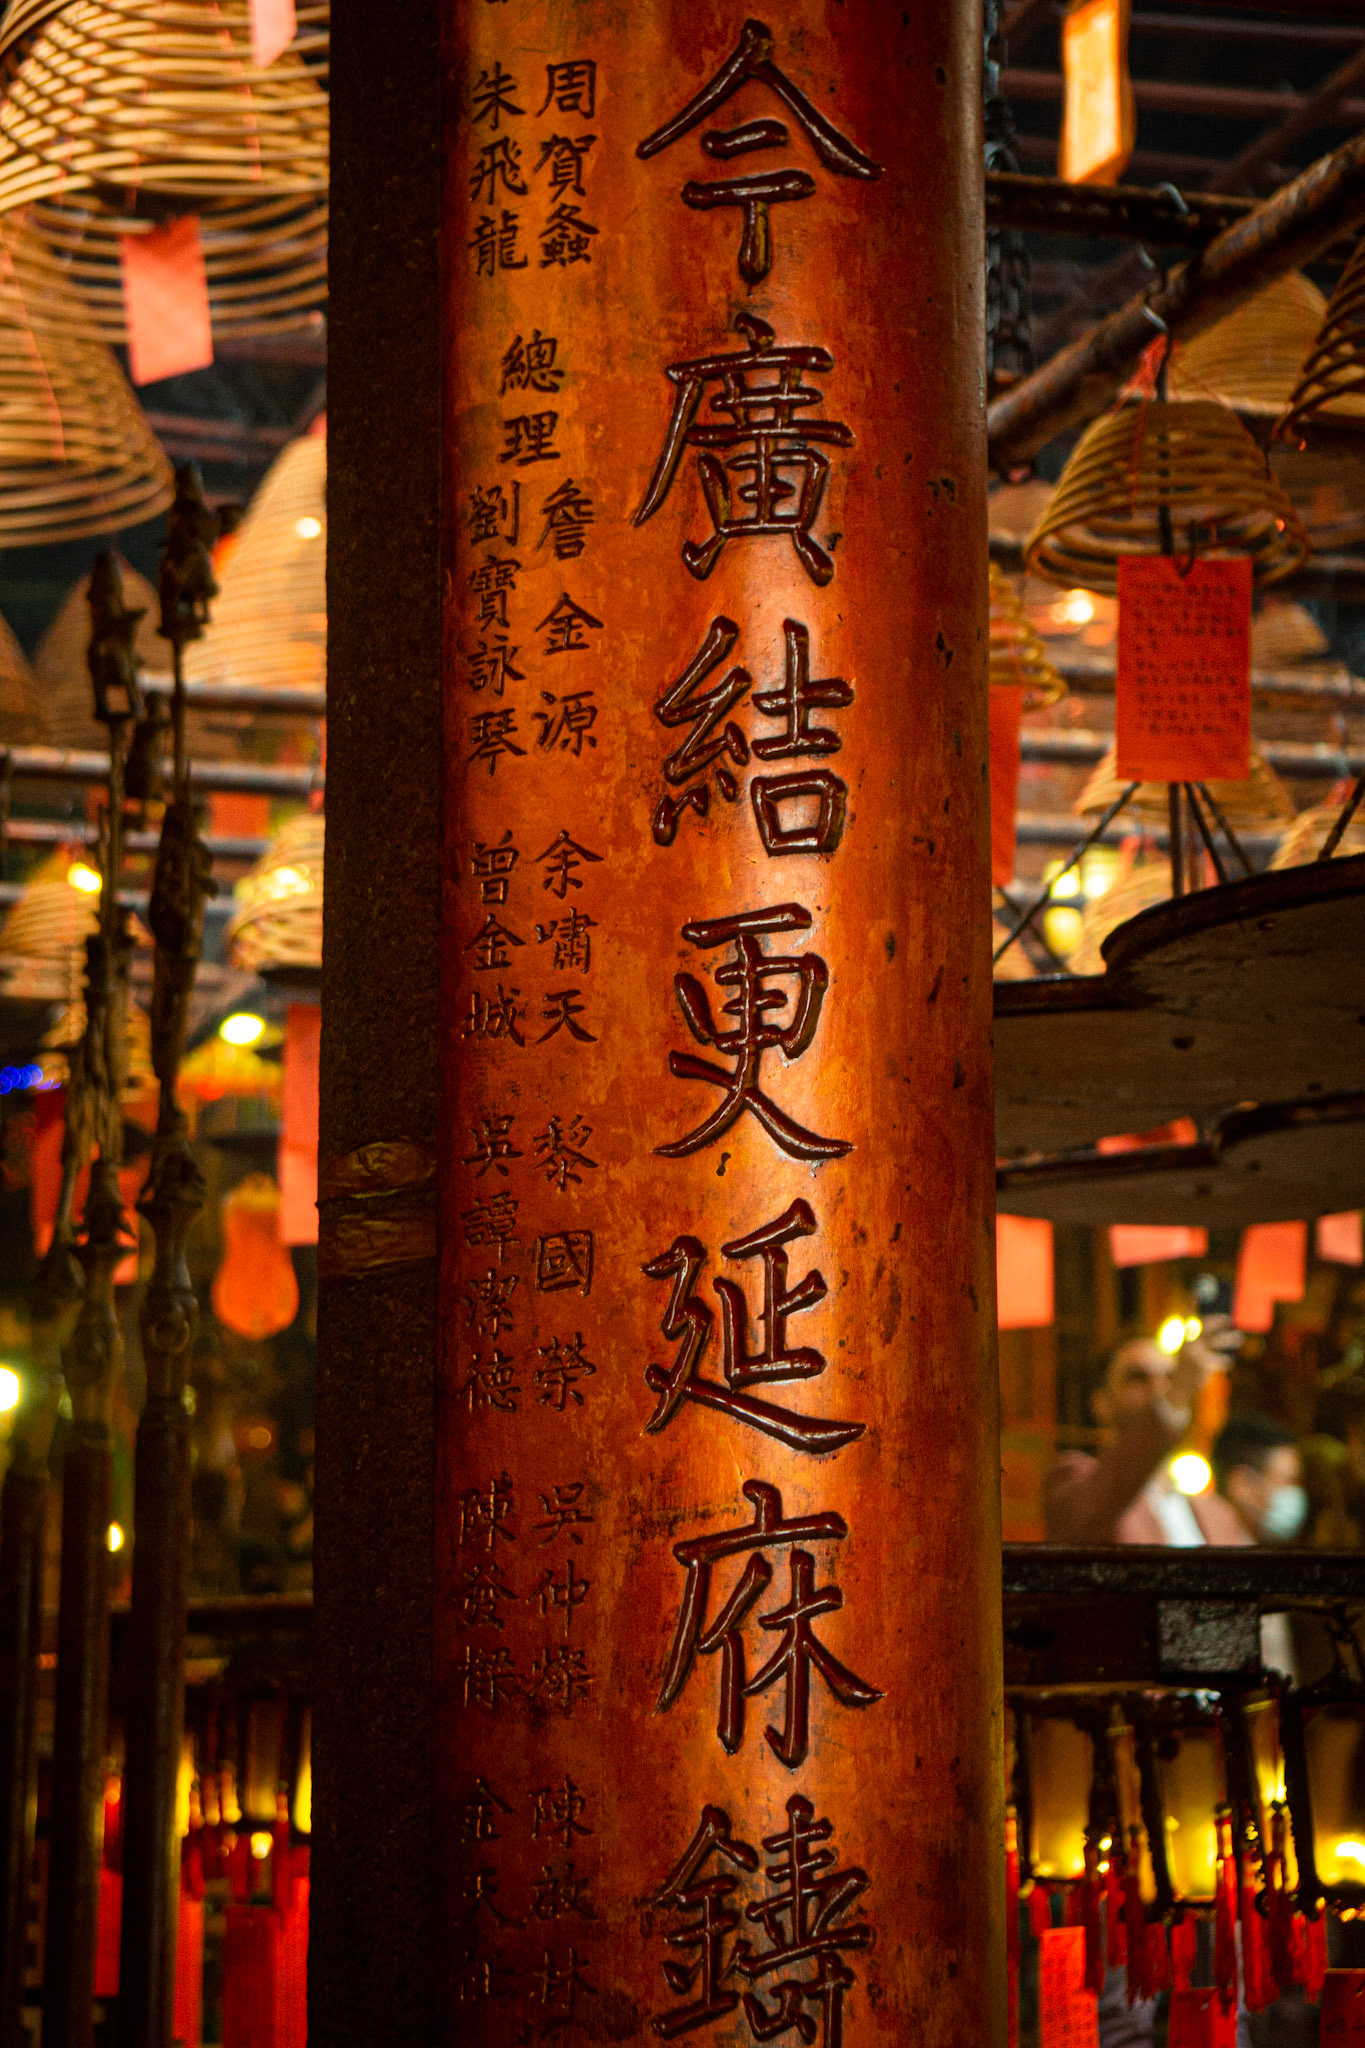 今廣結更延庥鑄
周賀螽
朱飛龍
總理
詹金源 余嘯天 黎國榮 吳仲燦 陳林
劉寶詠琴 曾金城 吳譚潔德 陳發樑 金天